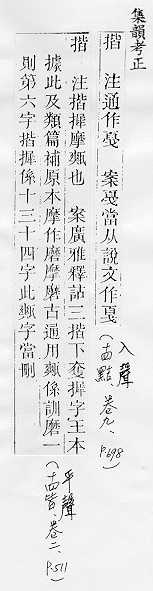 集韻考正
揩　注通作戞　案戞當从說文作戛
入聲（十四黠、卷九、P.698）
揩　注揩摩㼳也　案廣雅釋詁三揩下奪字王本
據此及類篇補原本摩作磨摩磨古通用㼳係訓磨一
則第六字揩係十三十四字此㼳字當刪
平聲（十四皆、卷二、P.511）